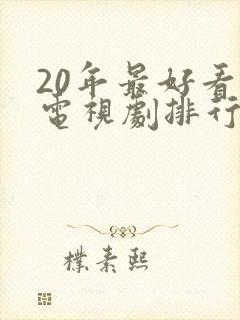 20年最好看
電視劇排行
樸素熙